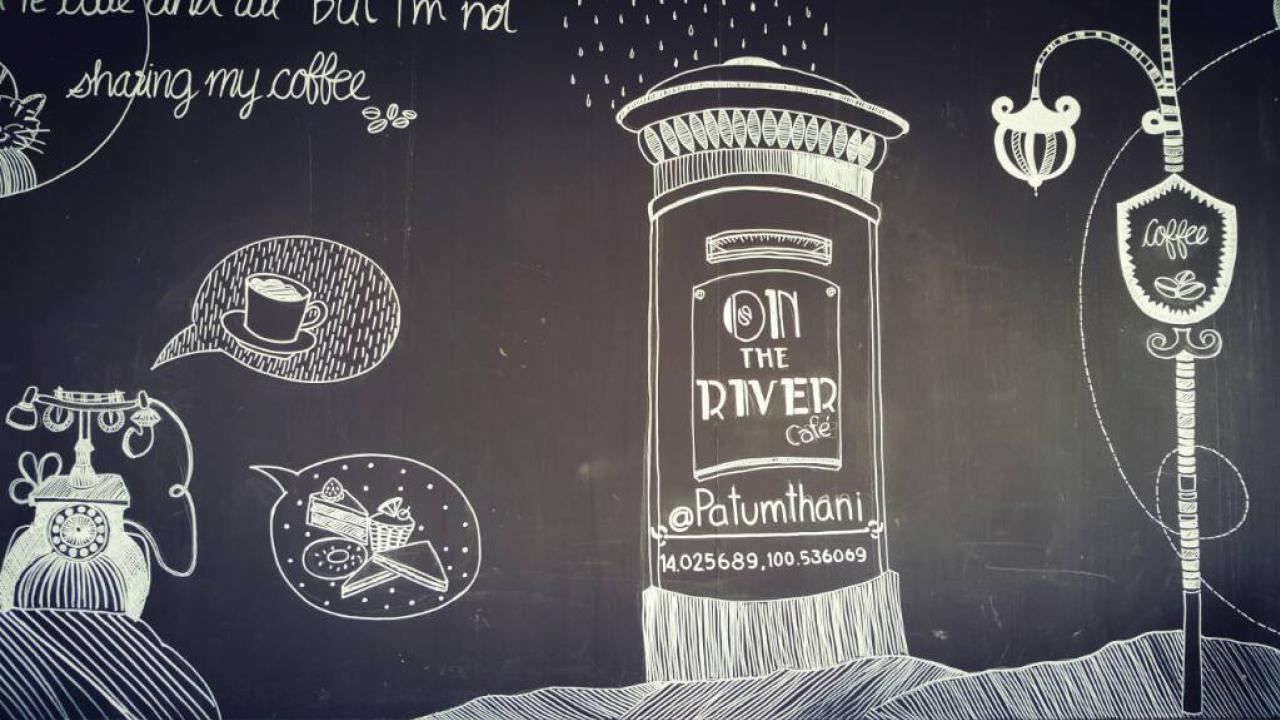 and all but I'm not
sharing my coffee
ON
THE
RIVER
Café
@Patumthani
14.025689,100.536069
Coffee